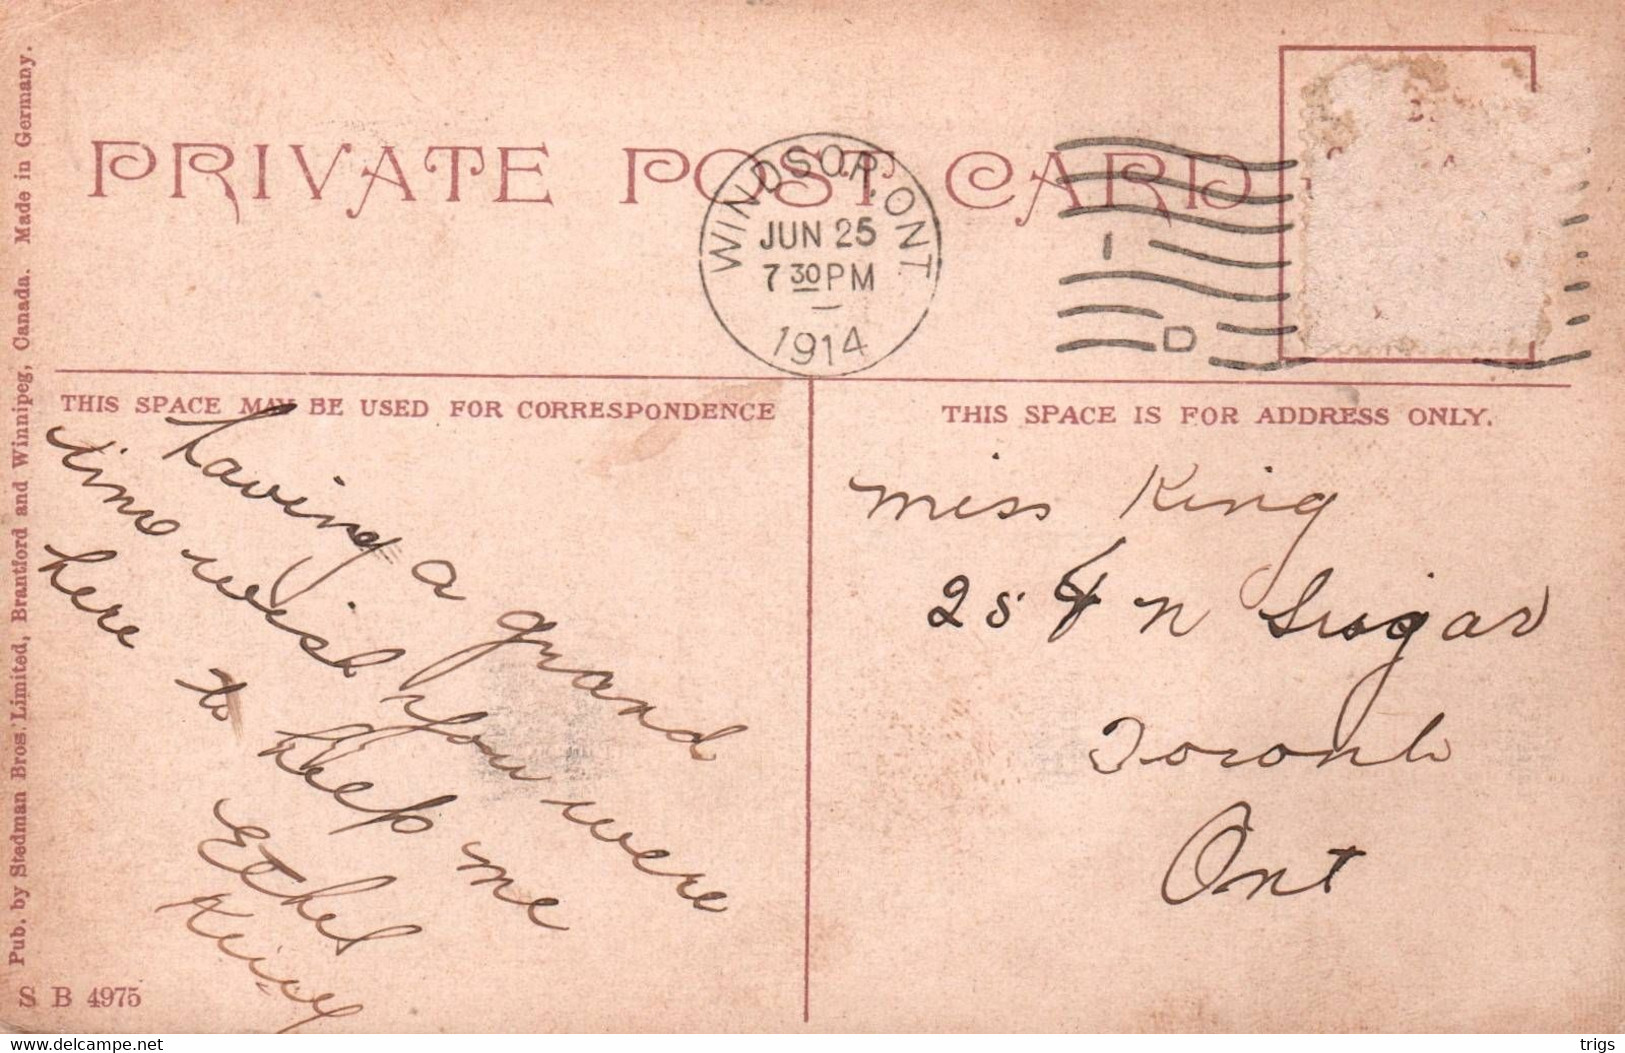 PRIVATE POST CARD
WINDSOR, ONT.
JUN 25
7 30 PM
1914
THIS SPACE MAY BE USED FOR CORRESPONDENCE
THIS SPACE IS FOR ADDRESS ONLY.
having a grand
time wish you were
here to keep me
Ethel
King
Miss King
254 N
Toronto
Ont
Pub. by Stedman Bros. Limited, Brantford and Winnipeg, Canada. Made in Germany.
S B 4975
www.delcampe.net
trigs